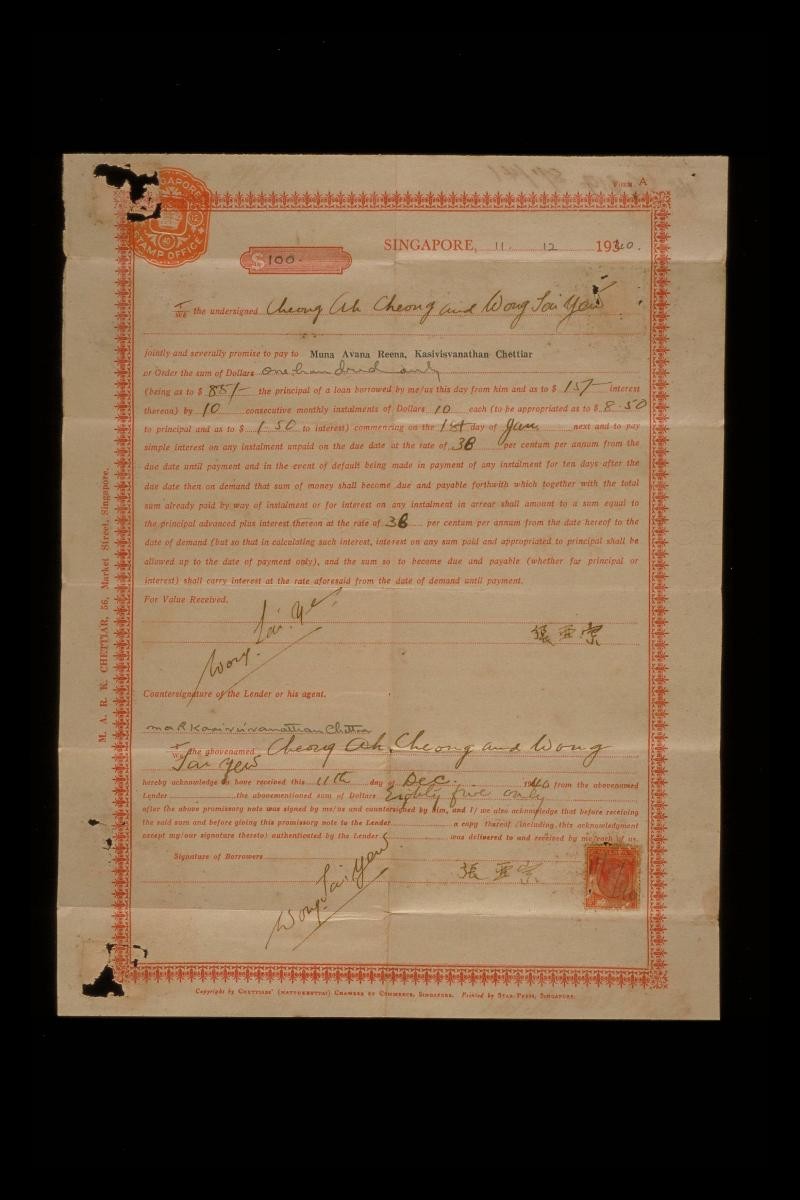 FORM A
SINGAPORE
STAMP OFFICE
SINGAPORE, 11. 12 1940.
$100.
I/We the undersigned Cheong Ah Cheong and Wong Sai Yew
jointly and severally promise to pay to Muna Avana Reena, Kasivisvanathan Chettiar
or Order the sum of Dollars one hundred only
(being as to $ 85/- the principal of a loan borrowed by me/us this day from him and as to $ 15/- interest
thereon) by 10 consecutive monthly instalments of Dollars 10 each (to be appropriated as to $ 8.50
to principal and as to $ 1.50 to interest) commencing on the 1st day of Jan. next and to pay
simple interest on any instalment unpaid on the due date at the rate of 36 per centum per annum from the
due date until payment and in the event of default being made in payment of any instalment for ten days after the
due date then on demand that sum of money shall become due and payable forthwith which together with the total
sum already paid by way of instalment or for interest on any instalment in arrear shall amount to a sum equal to
the principal advanced plus interest thereon at the rate of 36 per centum per annum from the date hereof to the
date of demand (but so that in calculating such interest, interest on any sum paid and appropriated to principal shall be
allowed up to the date of payment only), and the sum so to become due and payable (whether for principal or
interest) shall carry interest at the rate aforesaid from the date of demand until payment.
For Value Received.
Wong Sai Yew
張亞宗
Countersignature of the Lender or his agent.
M A R Kasivisvanathan Chettiar
I/We the abovenamed Cheong Ah Cheong and Wong
Sai Yew
hereby acknowledge to have received this 11th day of Dec. 1940 from the abovenamed
Lender the abovementioned sum of Dollars Eighty five only
after the above promissory note was signed by me/us and countersigned by him, and I/we also acknowledge that before receiving
the said sum and before giving this promissory note to the Lender a copy thereof (including this acknowledgment
except my/our signature thereto) authenticated by the Lender was delivered to and received by me/each of us.
Signature of Borrowers
Wong Sai Yew
張亞宗
M. A. R. K. CHETTIAR, 56, Market Street, Singapore.
Copyright by CHETTIARS' (NATTUKOTTAI) CHAMBER OF COMMERCE, SINGAPORE. Printed by STAR PRESS, SINGAPORE.